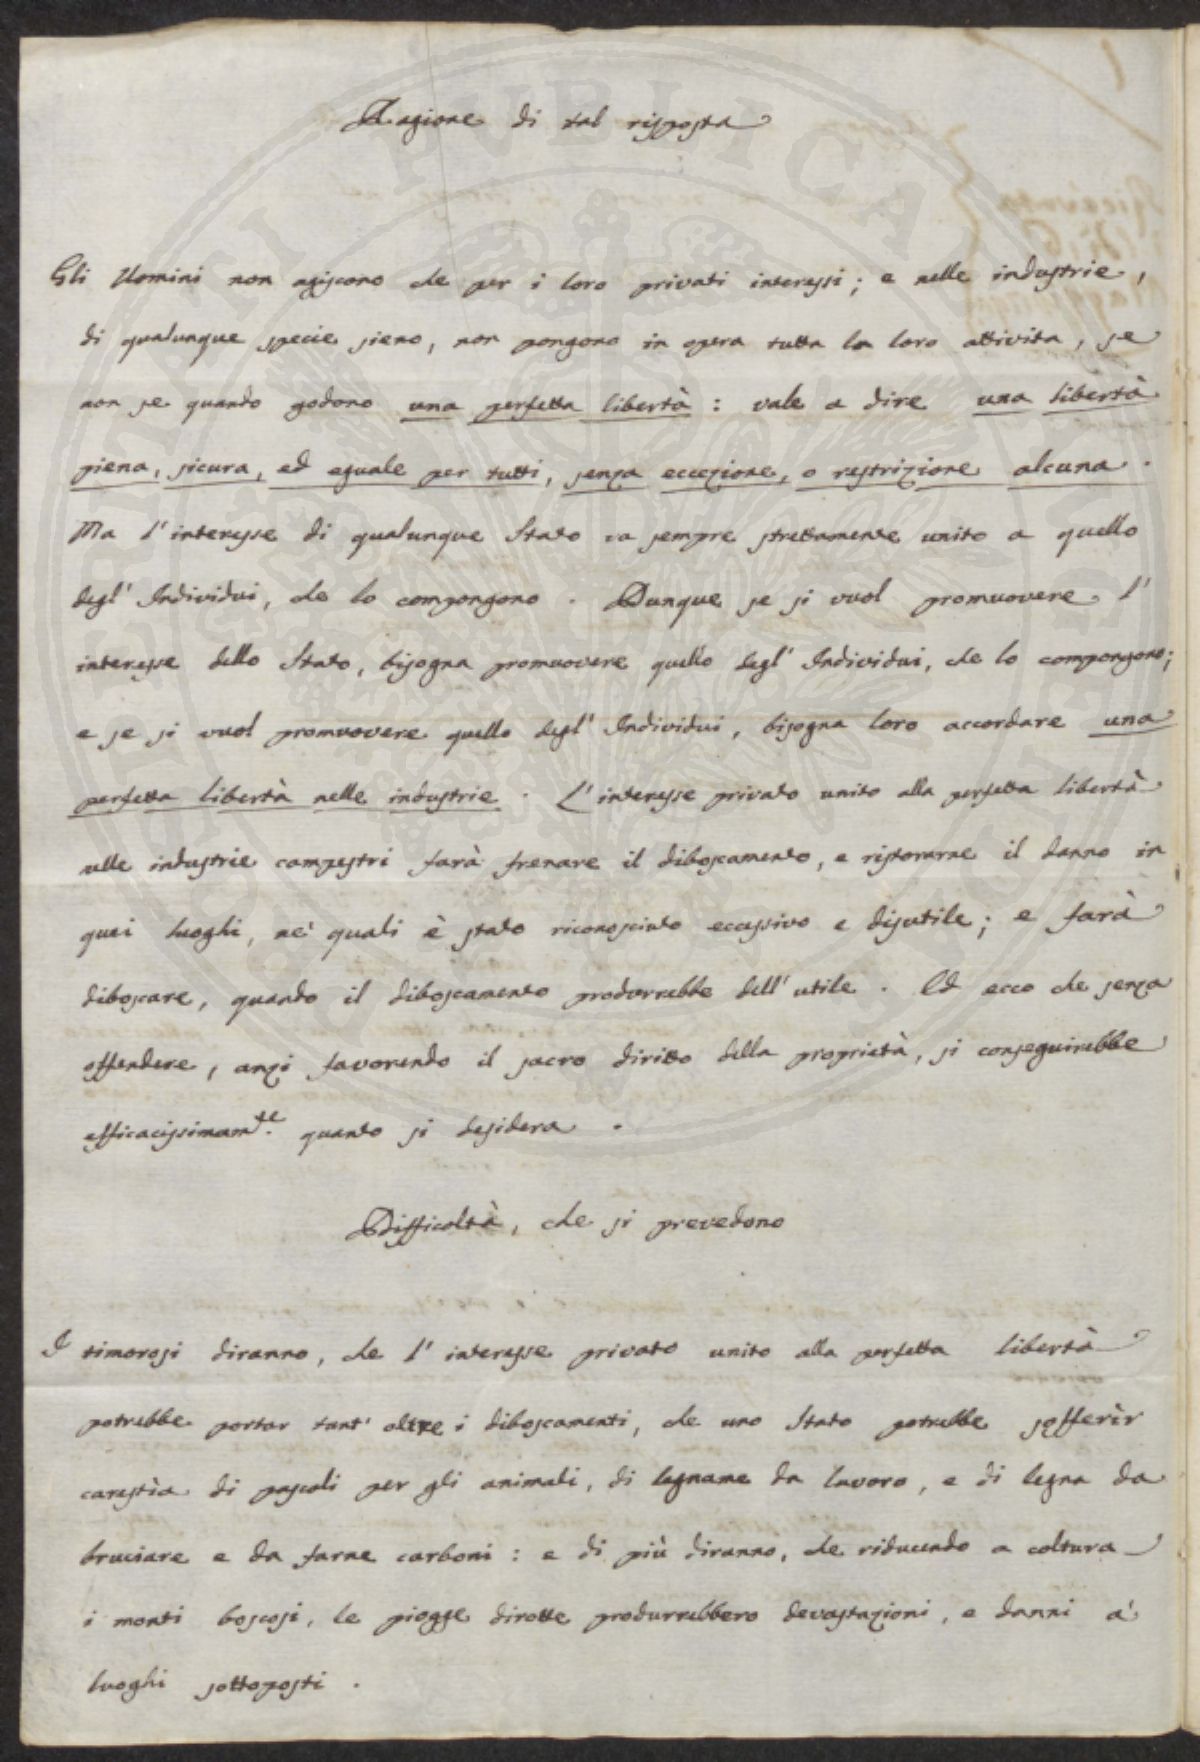 Ragione di tal risposta
Gli Uomini non agiscono che per i loro privati interessi; e nelle industrie,
di qualunque specie sieno, non pongono in opera tutta la loro attivita, se
non se quando godono una perfetta libertà: vale a dire una libertà
piena, sicura, ed eguale per tutti, senza eccezione, o restrizione alcuna.
Ma l'interesse di qualunque Stato va sempre strettamente unito a quello
degl' Individui, che lo compongono. Dunque se si vuol promuovere l'
interesse dello Stato, bisogna promuovere quello degl' Individui, che lo compongono;
e se si vuol promuovere quello degl' Individui, bisogna loro accordare una
perfetta libertà nelle industrie. L'interesse privato unito alla perfetta libertà
nelle industrie campestri farà frenare il diboscamento, e ristorarne il danno in
quei luoghi, ne' quali è stato riconosciuto eccessivo e disutile; e farà
diboscare, quando il diboscamento produrrebbe dell'utile. Ed ecco che senza
offendere, anzi favorendo il sacro diritto della proprietà, si conseguirebbe
efficacissimamte. quanto si desidera.
Difficoltà, che si prevedono
I timorosi diranno, che l'interesse privato unito alla perfetta libertà
potrebbe portar tant' oltre i diboscamenti, che uno Stato potrebbe sofferir
carestìa di pascoli per gli animali, di legname da lavoro, e di legna da
bruciare e da farne carboni: e di più diranno, che riducendo a coltura
i monti boscosi, le piogge dirotte produrrebbero devastazioni, e danni a'
luoghi sottoposti.